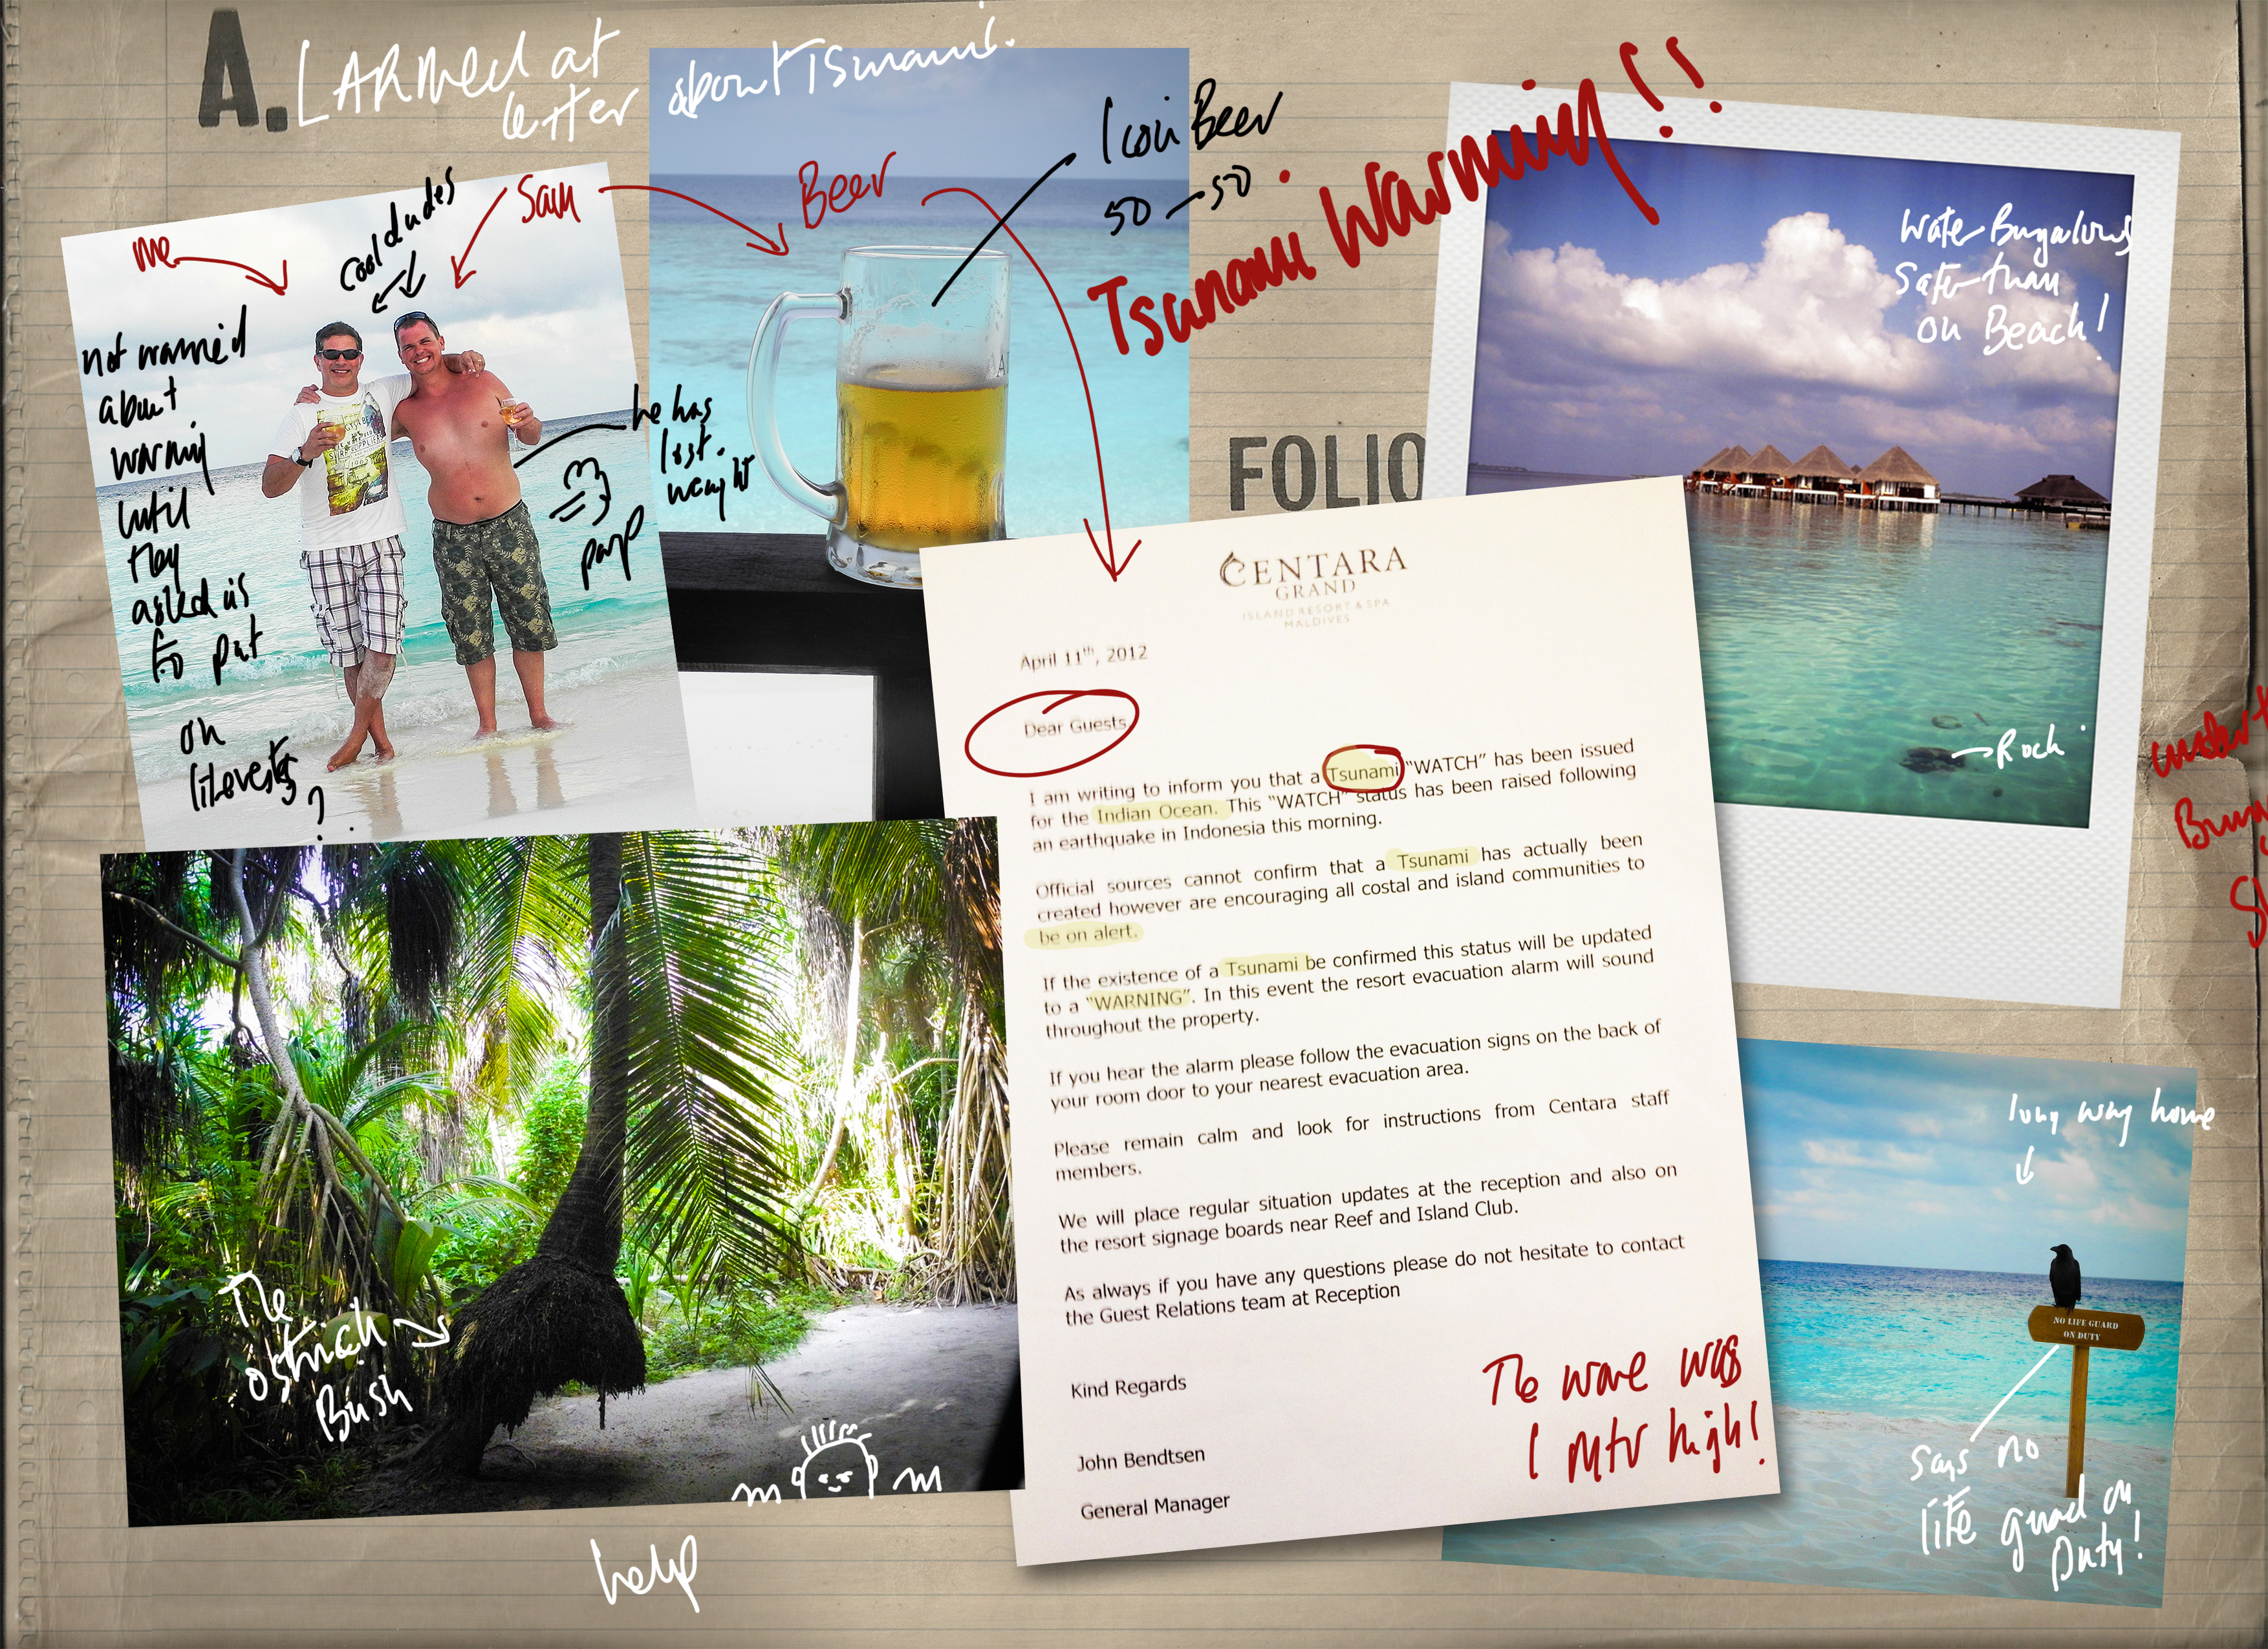 A.LARMED at
letter about Tsunami.
me
cool dudes
Sam
not worried
about
warning
until
they
asked us
to put
on
lifevests
?
he has
lost.
weight
parp
Beer
I con Beer
50-50
Tsunami Warning!!
FOLIO
Water Bungalows
Safer than
on Beach!
Rock
CENTARA
GRAND
ISLAND RESORT & SPA
MALDIVES
April 11th, 2012
Dear Guests
I am writing to inform you that a Tsunami "WATCH" has been issued
for the Indian Ocean. This "WATCH" status has been raised following
an earthquake in Indonesia this morning.
Official sources cannot confirm that a Tsunami has actually been
created however are encouraging all costal and island communities to
be on alert.
If the existence of a Tsunami be confirmed this status will be updated
to a "WARNING". In this event the resort evacuation alarm will sound
throughout the property.
If you hear the alarm please follow the evacuation signs on the back of
your room door to your nearest evacuation area.
Please remain calm and look for instructions from Centara staff
members.
We will place regular situation updates at the reception and also on
the resort signage boards near Reef and Island Club.
As always if you have any questions please do not hesitate to contact
the Guest Relations team at Reception
Kind Regards
John Bendtsen
General Manager
The wave was
1 mtr high!
The
ostrich
Bush
help
long way home
NO LIFE GUARD
ON DUTY
says no
life guard on
Duty!